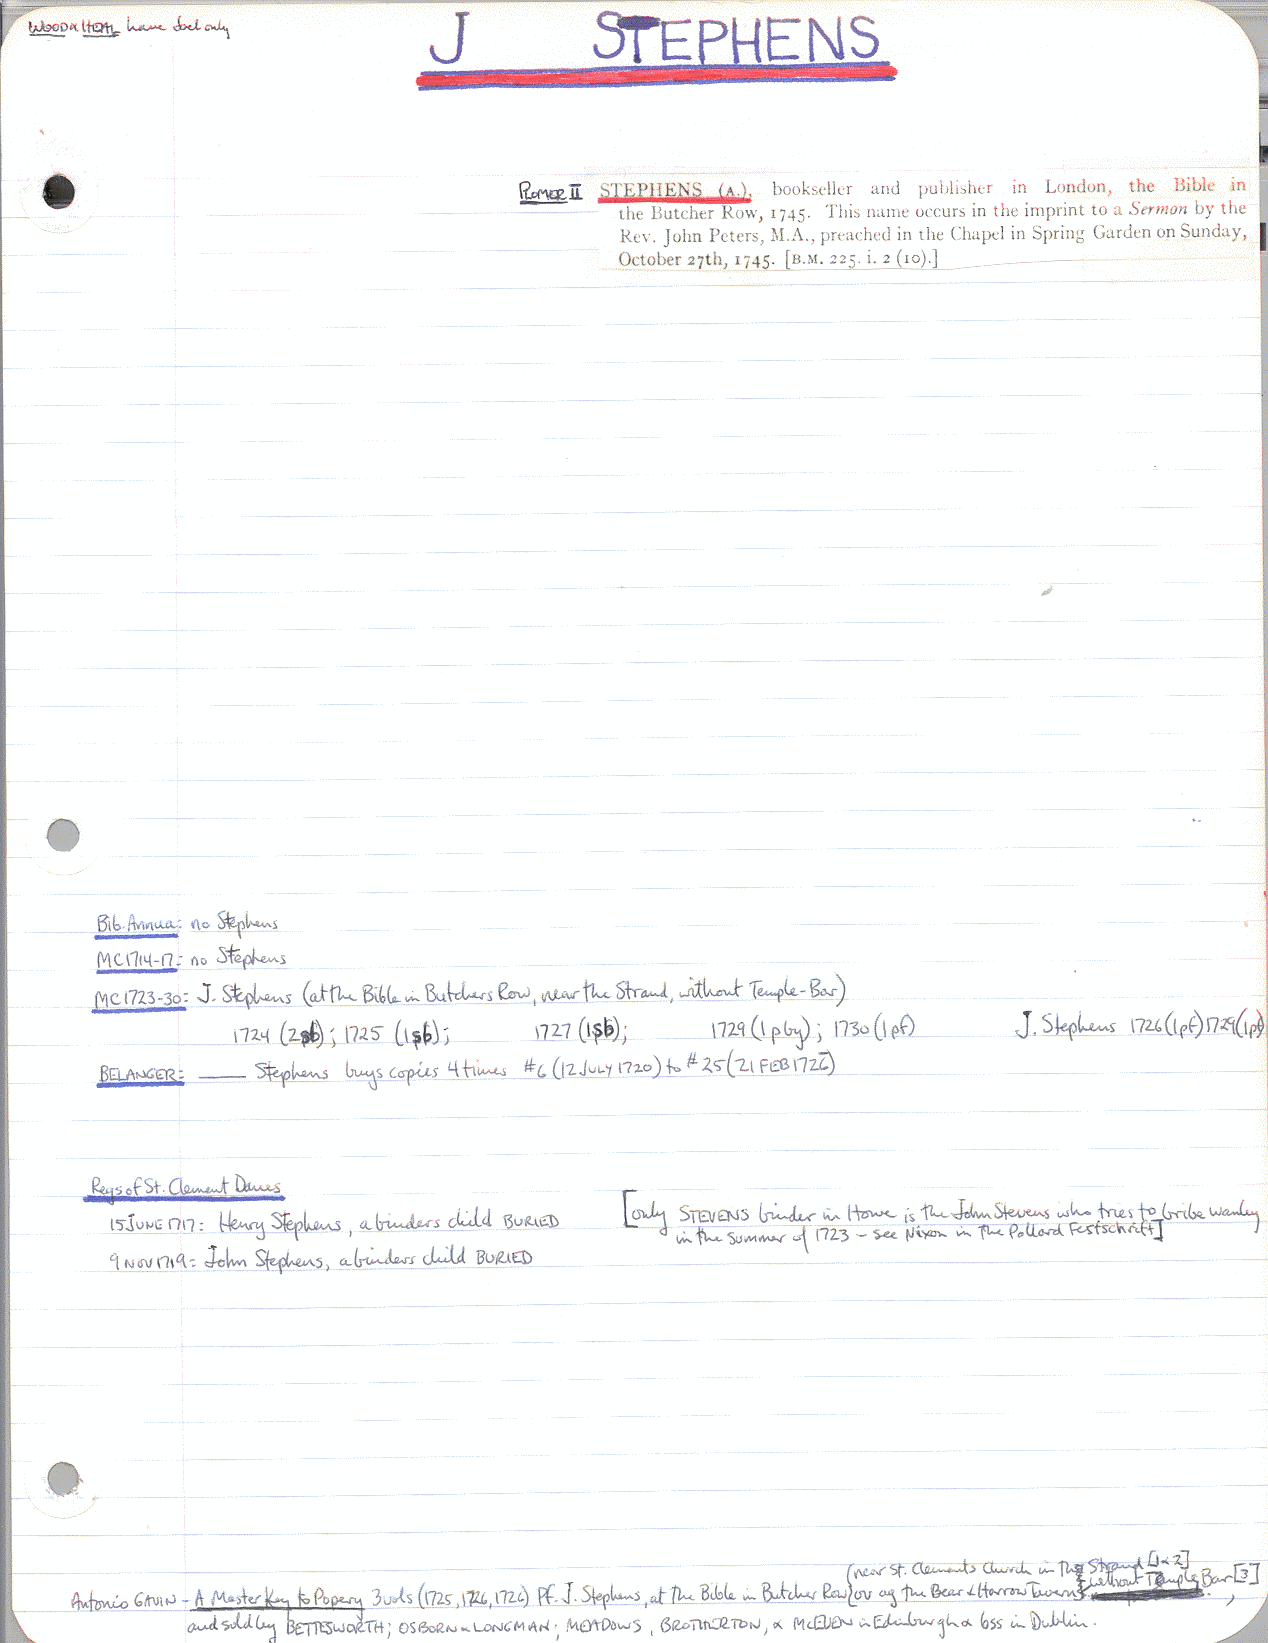 WOOD & HEAL have Joel only
J STEPHENS
PLOMER II STEPHENS (A.), bookseller and publisher in London, the Bible in
the Butcher Row, 1745. This name occurs in the imprint to a Sermon by the
Rev. John Peters, M.A., preached in the Chapel in Spring Garden on Sunday,
October 27th, 1745. [B.M. 225. i. 2 (10).]
Bib. Annua: no Stephens
MC1714-17: no Stephens
MC1723-30: J. Stephens (at the Bible in Butchers Row, near the Strand, without Temple-Bar)
1724 (2sb); 1725 (1sb); 1727 (1sb); 1729 (1pby); 1730 (1pf) J. Stephens 1726 (1pf) 1729 (1pf)
BELANGER: —— Stephens buys copies 4 times #6 (12 JULY 1720) to #25 (21 FEB 1726)
Regs of St. Clement Danes
15 JUNE 1717: Henry Stephens, a binders child BURIED
[only STEVENS binder in Howe is the John Stevens who tries to bribe Wanley
in the summer of 1723 - see Nixon in The Pollard Festschrift]
9 NOV 1719: John Stephens, a binders child BURIED
(near St. Clements Church in the Strand [1 & 2]
Antonio GAVIN - A Master Key to Popery 3 vols (1725, 1726, 1726) Pf. J. Stephens, at the Bible in Butcher Row { ov ag the Bear & Harrow Tavern } without Temple Bar [3] ,
and sold by BETTESWORTH; OSBORN & LONGMAN; MEADOWS, BROTHERTON, & McEUEN in Edinburgh & bss in Dublin.